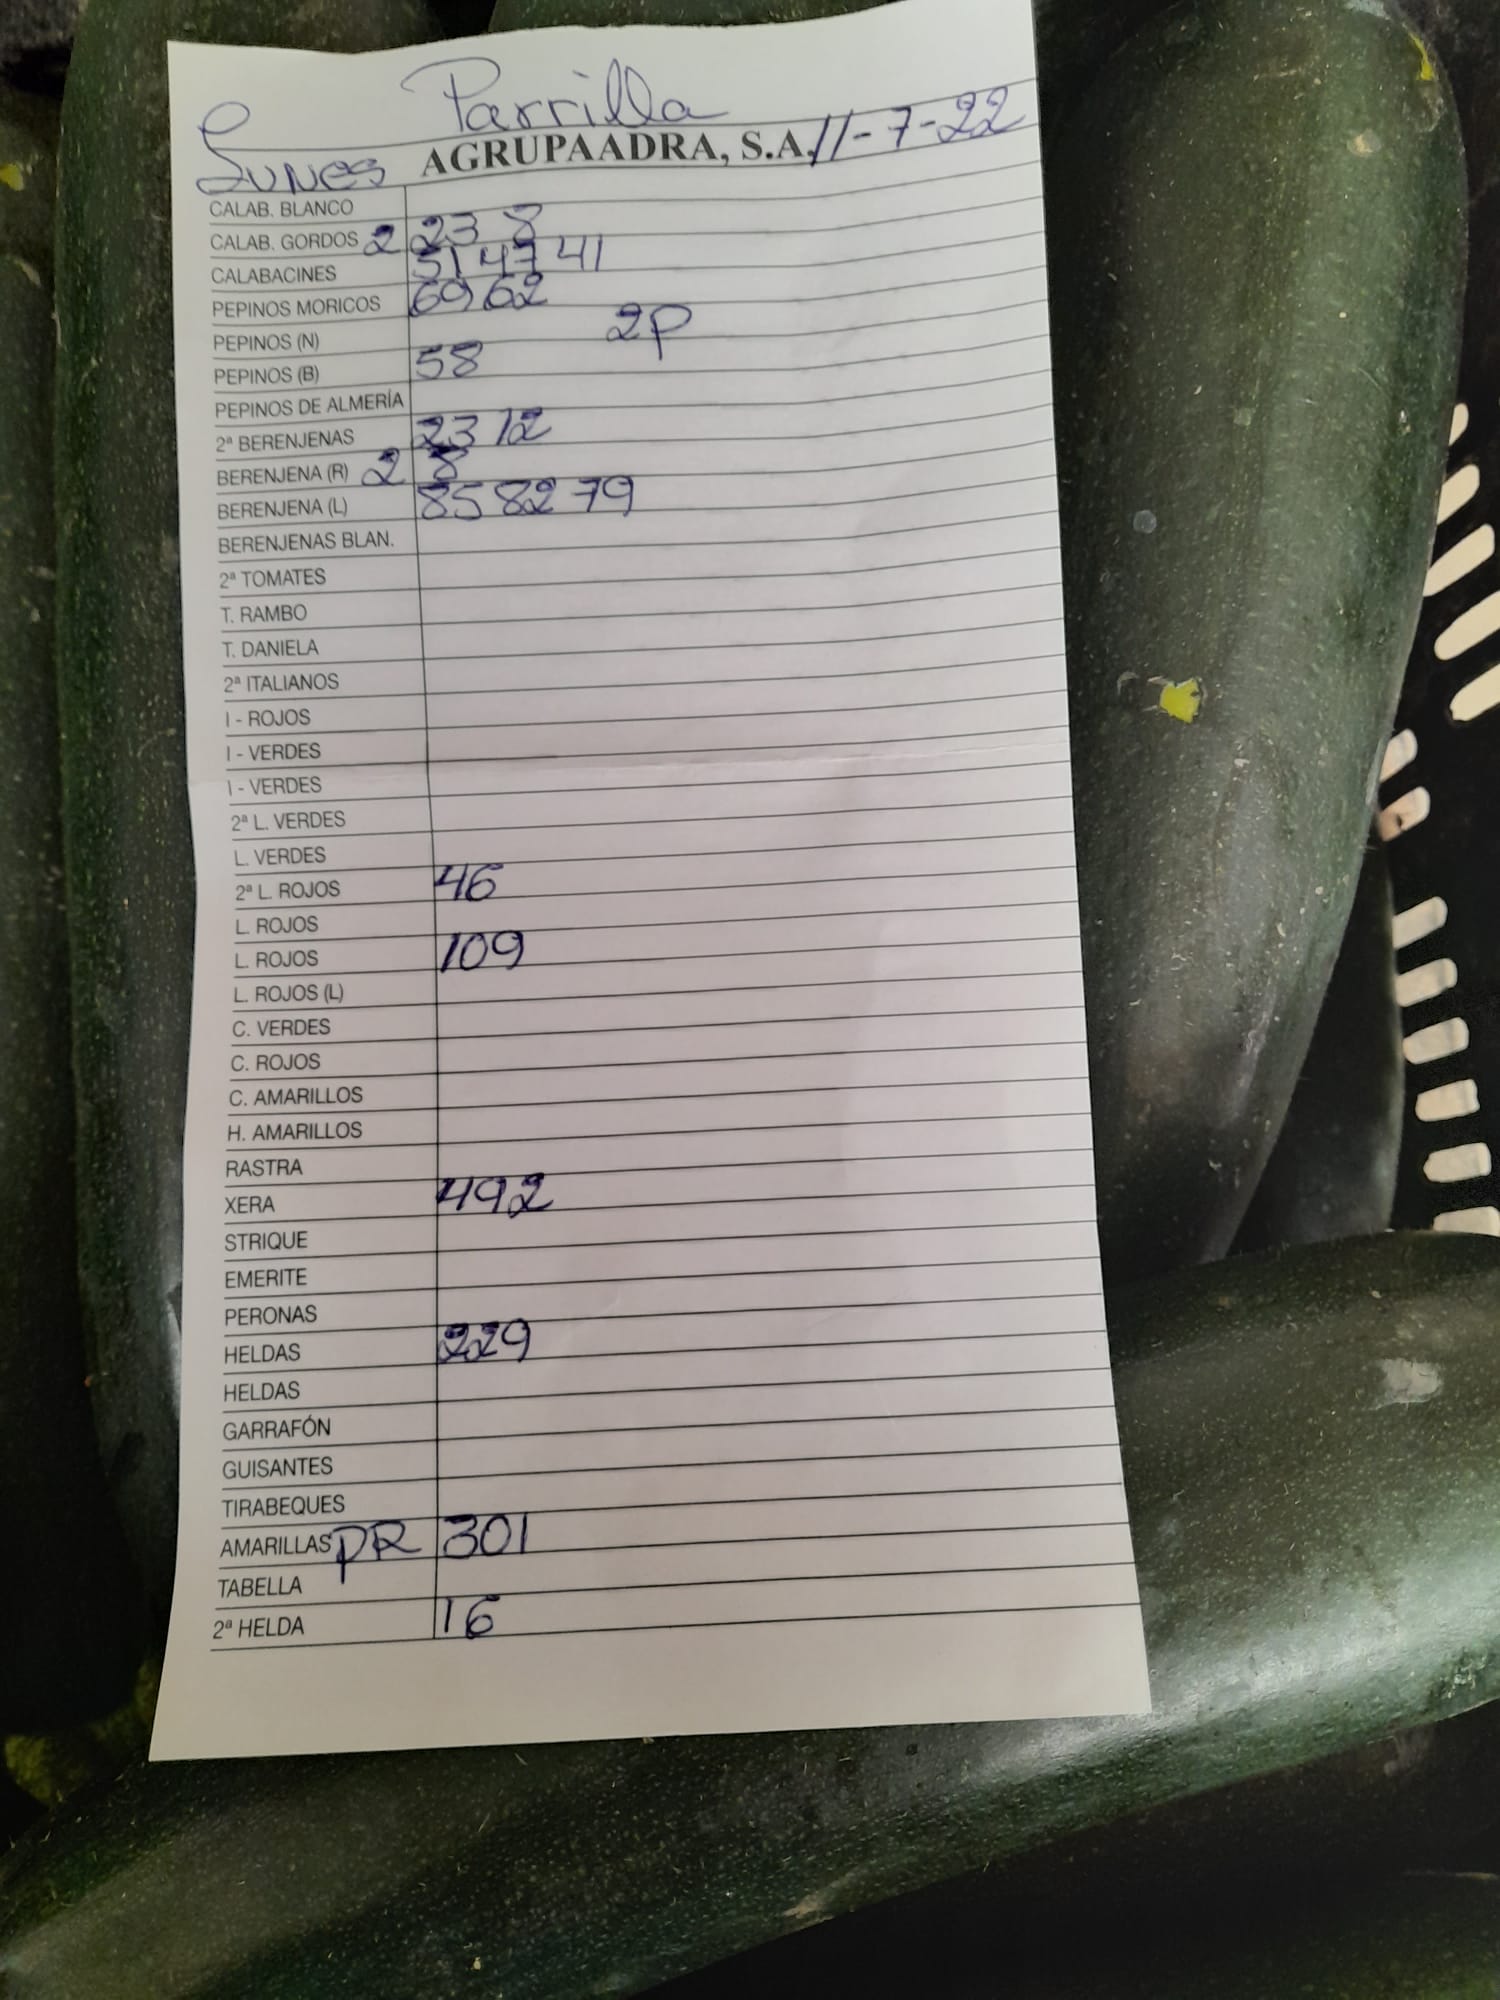 Parrilla
Lunes AGRUPAADRA, S.A. 11-7-22
CALAB. BLANCO
CALAB. GORDOS 2 23 8
CALABACINES 51 47 41
PEPINOS MORICOS 69 62
PEPINOS (N) 2P
PEPINOS (B) 58
PEPINOS DE ALMERÍA
2ª BERENJENAS 23 12
BERENJENA (R) 2 8
BERENJENA (L) 85 82 79
BERENJENAS BLAN.
2ª TOMATES
T. RAMBO
T. DANIELA
2ª ITALIANOS
I - ROJOS
I - VERDES
I - VERDES
2ª L. VERDES
L. VERDES
2ª L. ROJOS 46
L. ROJOS
L. ROJOS 109
L. ROJOS (L)
C. VERDES
C. ROJOS
C. AMARILLOS
H. AMARILLOS
RASTRA
XERA 492
STRIQUE
EMERITE
PERONAS
HELDAS 229
HELDAS
GARRAFÓN
GUISANTES
TIRABEQUES
AMARILLAS PR 301
TABELLA
2ª HELDA 16